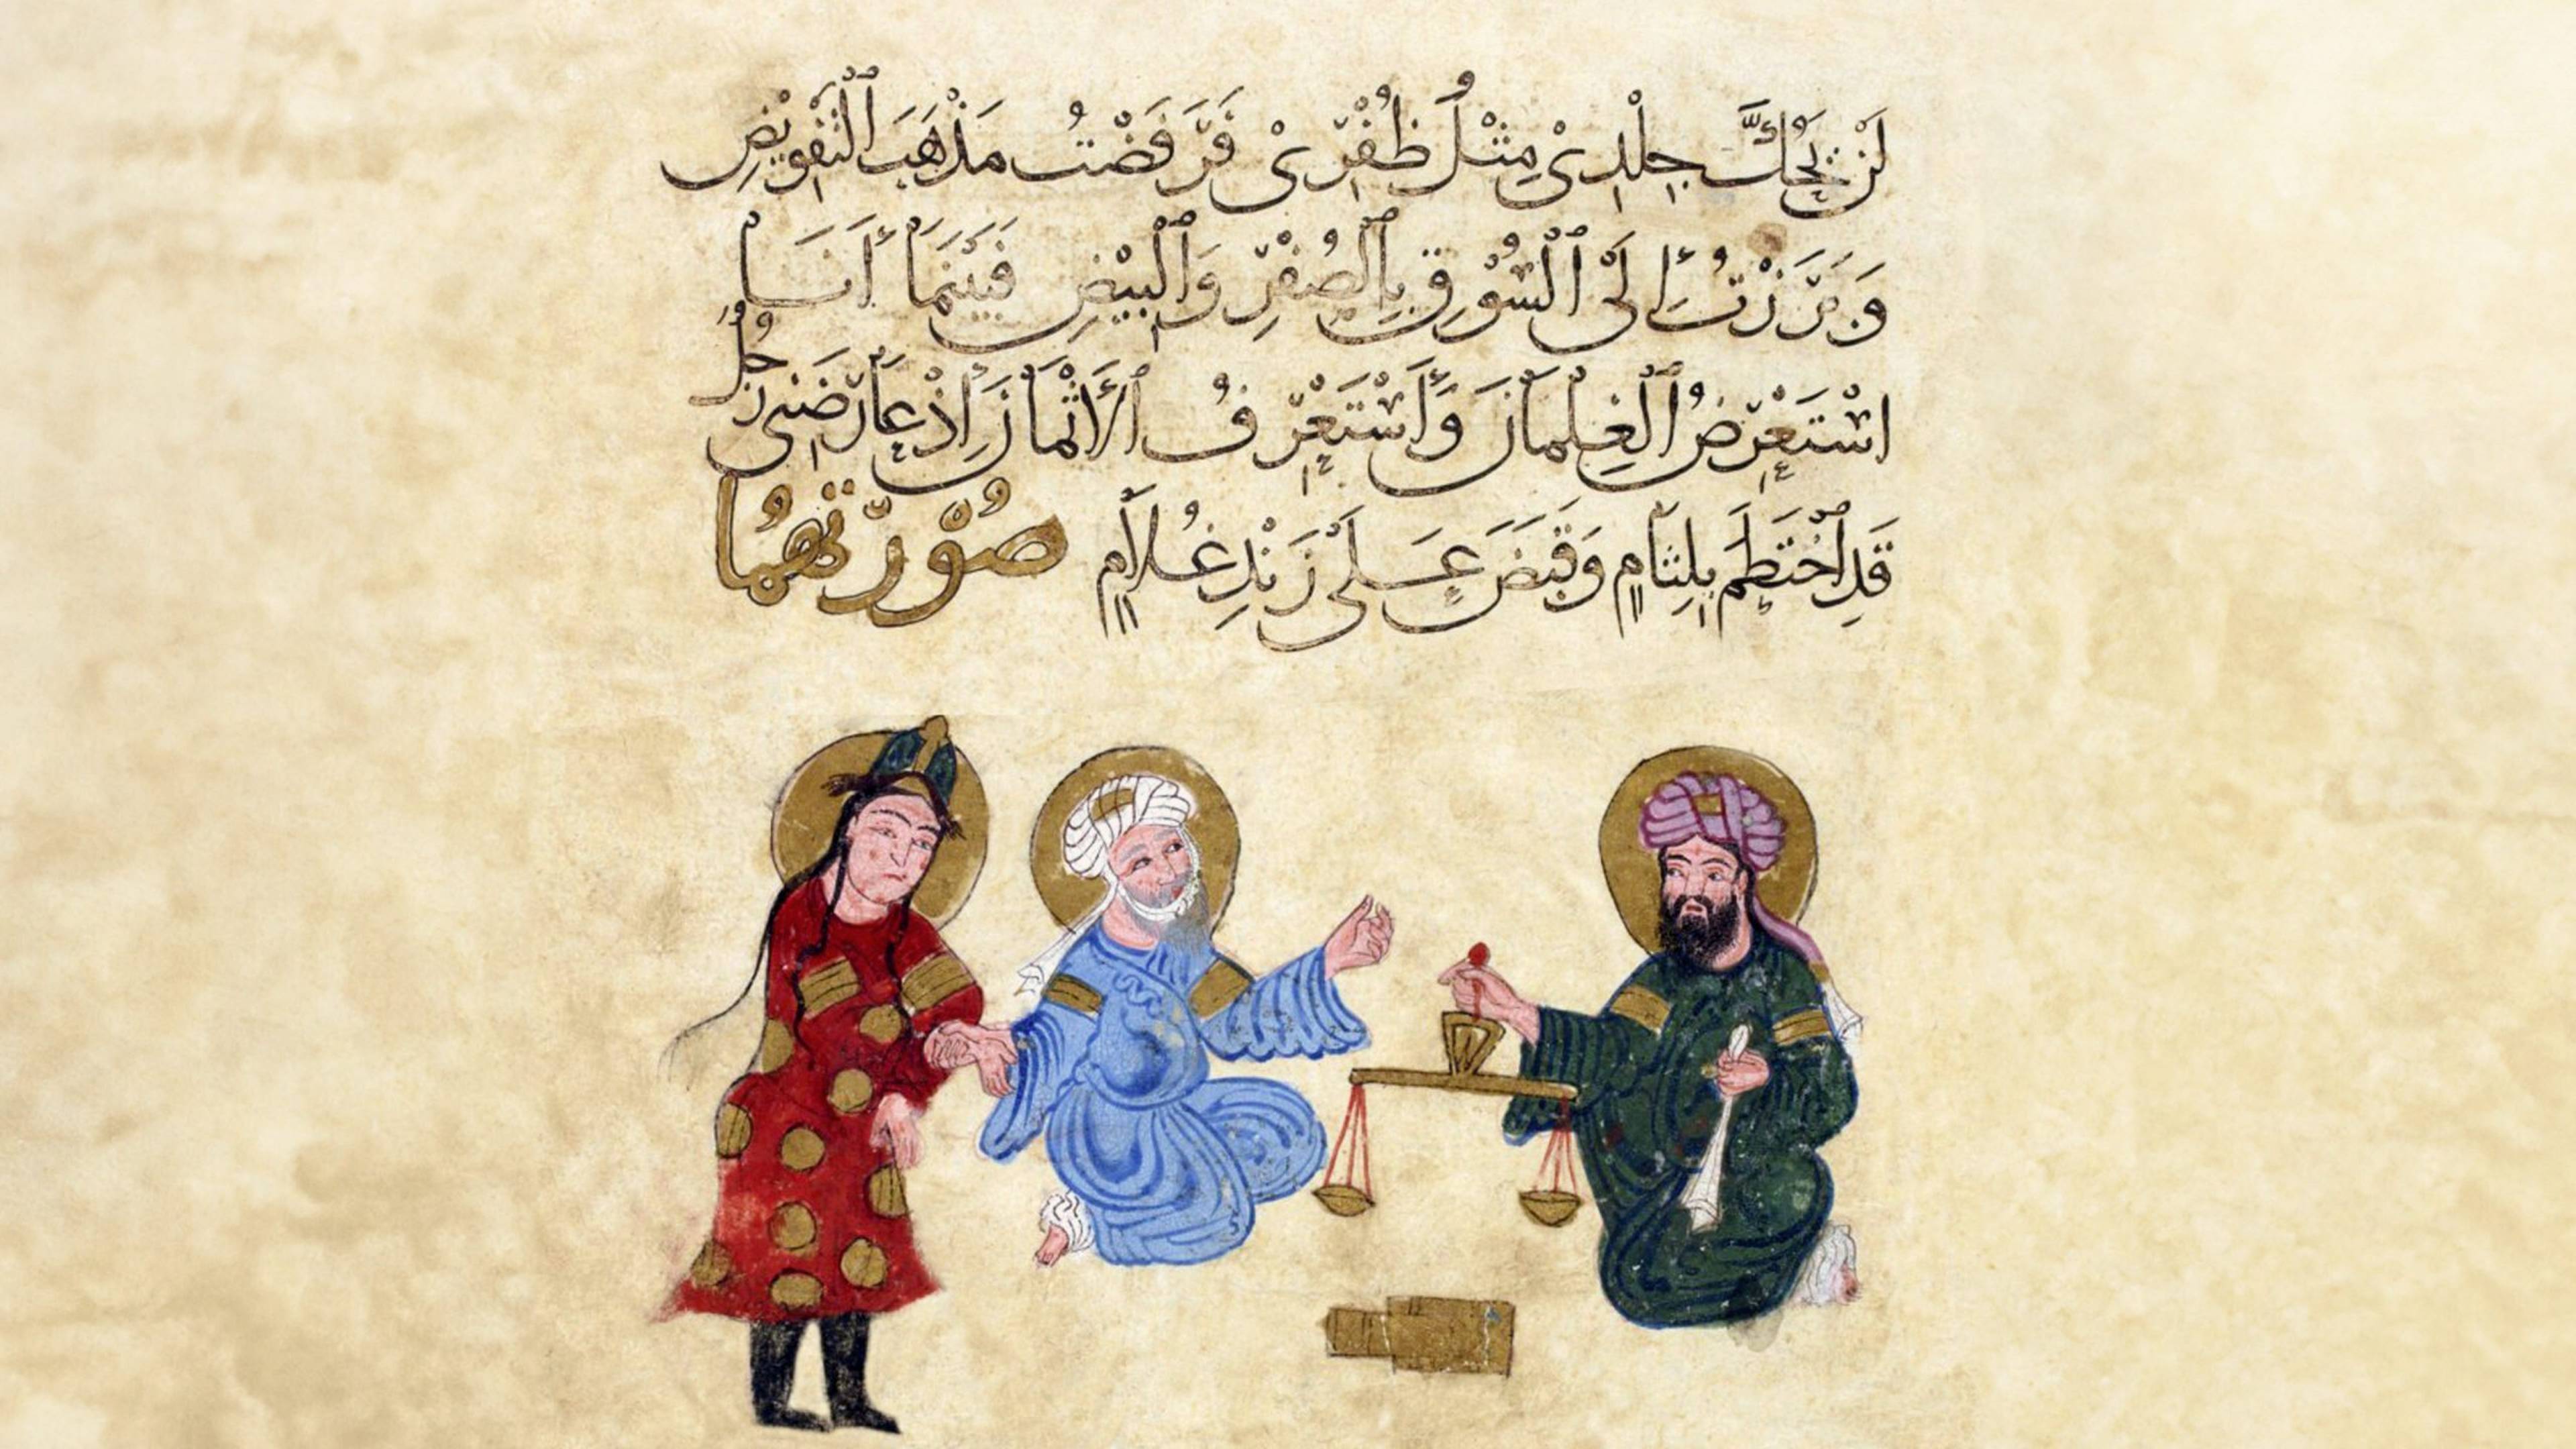 لَنْ يَحُكَّ جِلْدِىْ مِثْلُ ظُفْرِىْ فَرَفَضْتُ مَذْهَبَ ٱلْتَفْوِيْضِ
وَبَرَزْتُ إِلَى ٱلْسُّوْقِ بِٱلصُفْرِ وَٱلْبِيْضِ فَبَيْنَمَا أَنَا
اسْتَعْرِضُ ٱلْغِلْمَانَ وَأَسْتَعْرِفُ ٱلْأَثْمَانَ إِذْ عَارَضَنِى رَجُلٌ
قَدِ ٱخْتَطَمَ بِلِثَامٍ وَقَبَضَ عَلَى زَنْدِ غُلَامٍ صُوْرَتهُمَا